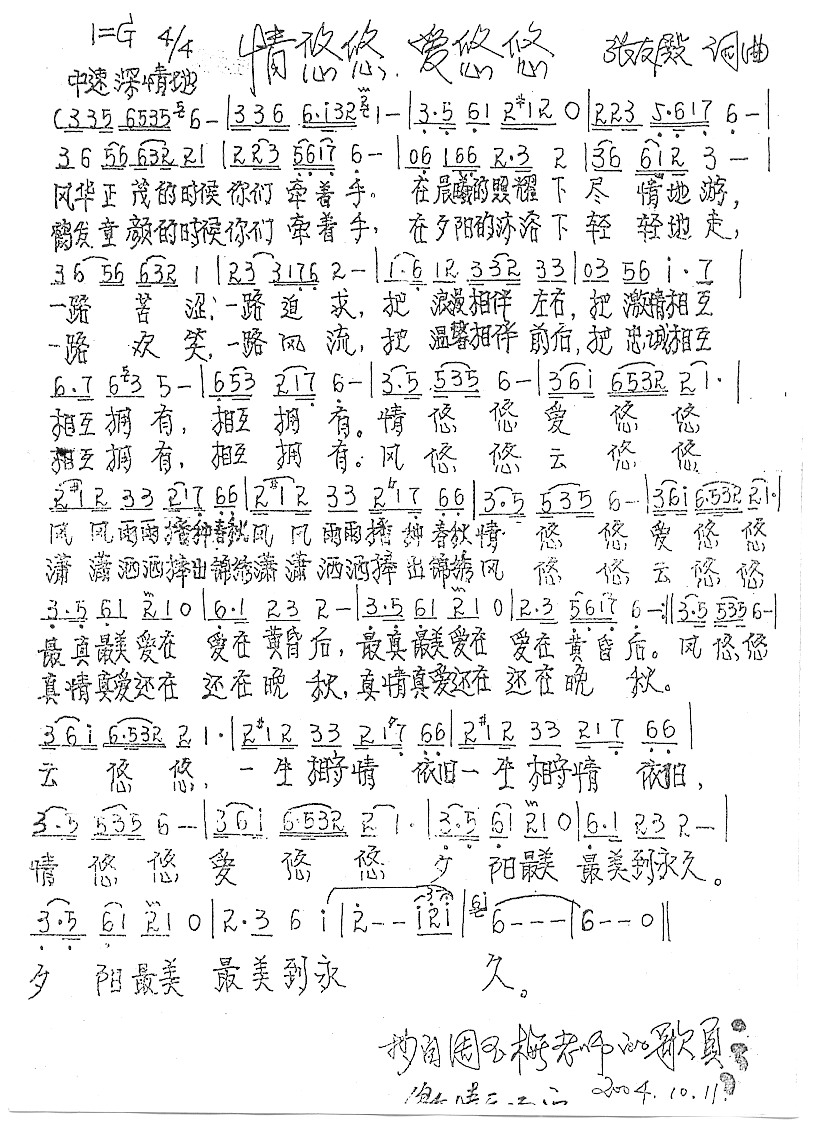 1=G 4/4 情悠悠 爱悠悠 张友殿 词曲
中速 深情地
(335 6535 6 - | 336 6·i32 1 - | 3·5 61 2#12 0 | 223 5·617 6 - |
36 56 632 21 | 223 5617 6 - | 06 166 2·3 2 | 36 612 3 - |
风华正茂的时候你们牵着手。在晨曦的照耀下尽情地游,
鹤发童颜的时候你们牵着手,在夕阳的沐浴下轻轻地走,
36 56 632 1 | 23 3176 2 - | 1·6 12 332 33 | 03 56 i·7 |
一路苦涩,一路追求,把浪漫相伴左右,把激情相互
一路欢笑,一路风流,把温馨相伴前后,把忠诚相互
6·7 63 5 - | 653 217 6 - | 3·5 535 6 - | 36i 6532 21· |
相互拥有,相互拥有。情悠悠爱悠悠
相互拥有,相互拥有。风悠悠云悠悠
2#12 33 217 66 | 2#12 33 2#17 66 | 3·5 535 6 - | 36i 6·532 21· |
风风雨雨播种春秋风风雨雨播种春秋情悠悠爱悠悠
潇潇洒洒捧出锦绣潇潇洒洒捧出锦绣风悠悠云悠悠
3·5 61 21 0 | 6·1 23 2 - | 3·5 61 21 0 | 2·3 5617 6 - :|| 3·5 535 6 - |
最真最美爱在 爱在黄昏后,最真最美爱在 爱在黄昏后。风悠悠
真情真爱还在 还在晚秋,真情真爱还在 还在晚秋。
36i 6·532 2 1· | 2#12 33 21#7 66 | 2#12 33 217 66 |
云悠悠,一生相守情依旧一生相守情依旧,
3·5 535 6 -- | 36i 6·532 2 1· | 3·5 61 21 0 | 6·1 23 2 - |
情悠悠爱悠悠夕阳最美 最美到永久。
3·5 61 21 0 | 2·3 6 i | 2 -- i2i | 6 --- | 6 -- 0 ||
夕阳最美 最美到永久。
抄自周玉梅老师的歌页
2004.10.11